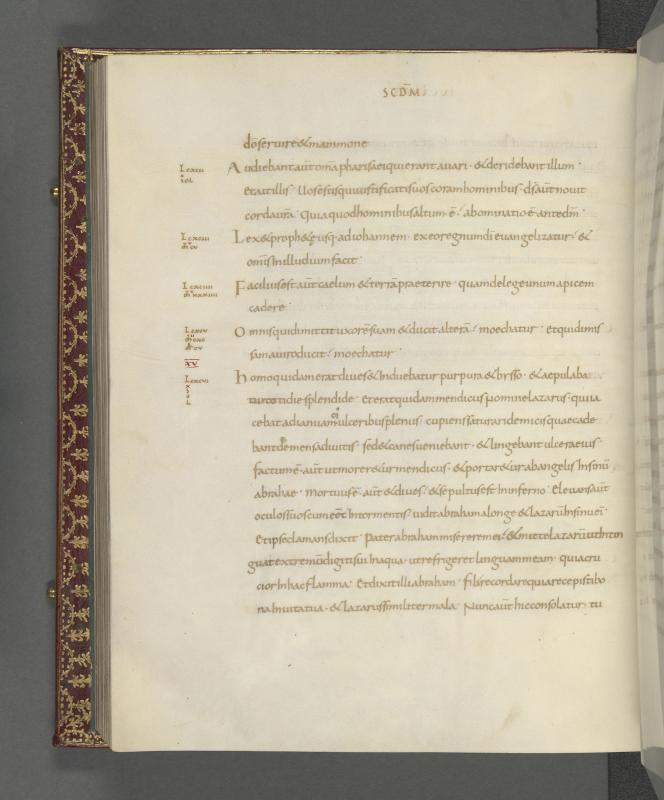 SCDM̄
dō seruire & mammone
Audiebant aut̄ om̄a pharisaei qui erant auari · & deridebant illum ·
et ait illis · Uos estis qui iustificatis uos coram hominibus · dī aut̄ nouit
corda ur̄a · Quia quod hominibus altum ē · abominatio ē ante dm̄ ·
Lex & proph&ę usq· ad iohannem · ex eo regnum dī euangelizatur · &
omīs In illud uim facit ·
Facilius est aut̄ caelum & terrā praeterire · quam de lege unum apicem
cadere ·
Omnis qui dimittit uxorē suam & ducit alterā · moechatur · et qui dimis
sam a uiro ducit · moechatur ·
XV
Homo quidam erat diues & Induebatur purpura & bysso · & aepulaba
tur cotidie splendide · Et erat quidam mendicus nomine lazarus · qui ia
cebat ad ianuam ulceribus plenus · cupiens saturari de micis quae cade
bant de mensa diuitis · sed & canes ueniebant · & lingebant ulcera eius ·
factum ē aut̄ ut morer&ur mendicus · & portar&ur ab angelis In sinū
abrahae · mortuus ē aut̄ & diues · & sepultus est In inferno · Eleuans aut̄
oculos suos cum eēt In tormentis · uidit abraham a longe & lazarū In sinu eī
Et ipse clamans dixit · Pater abraham miserere mei · & mitte lazarū ut intin
guat extremū digiti sui In aqua · ut refriger& linguam meam · quia cru
cior In hac flamma · Et dixit illi abraham · fili recordare quia recepisti bo
na In uita tua · & lazarus similiter mala · Nunc aut̄ hic consolatur · tu